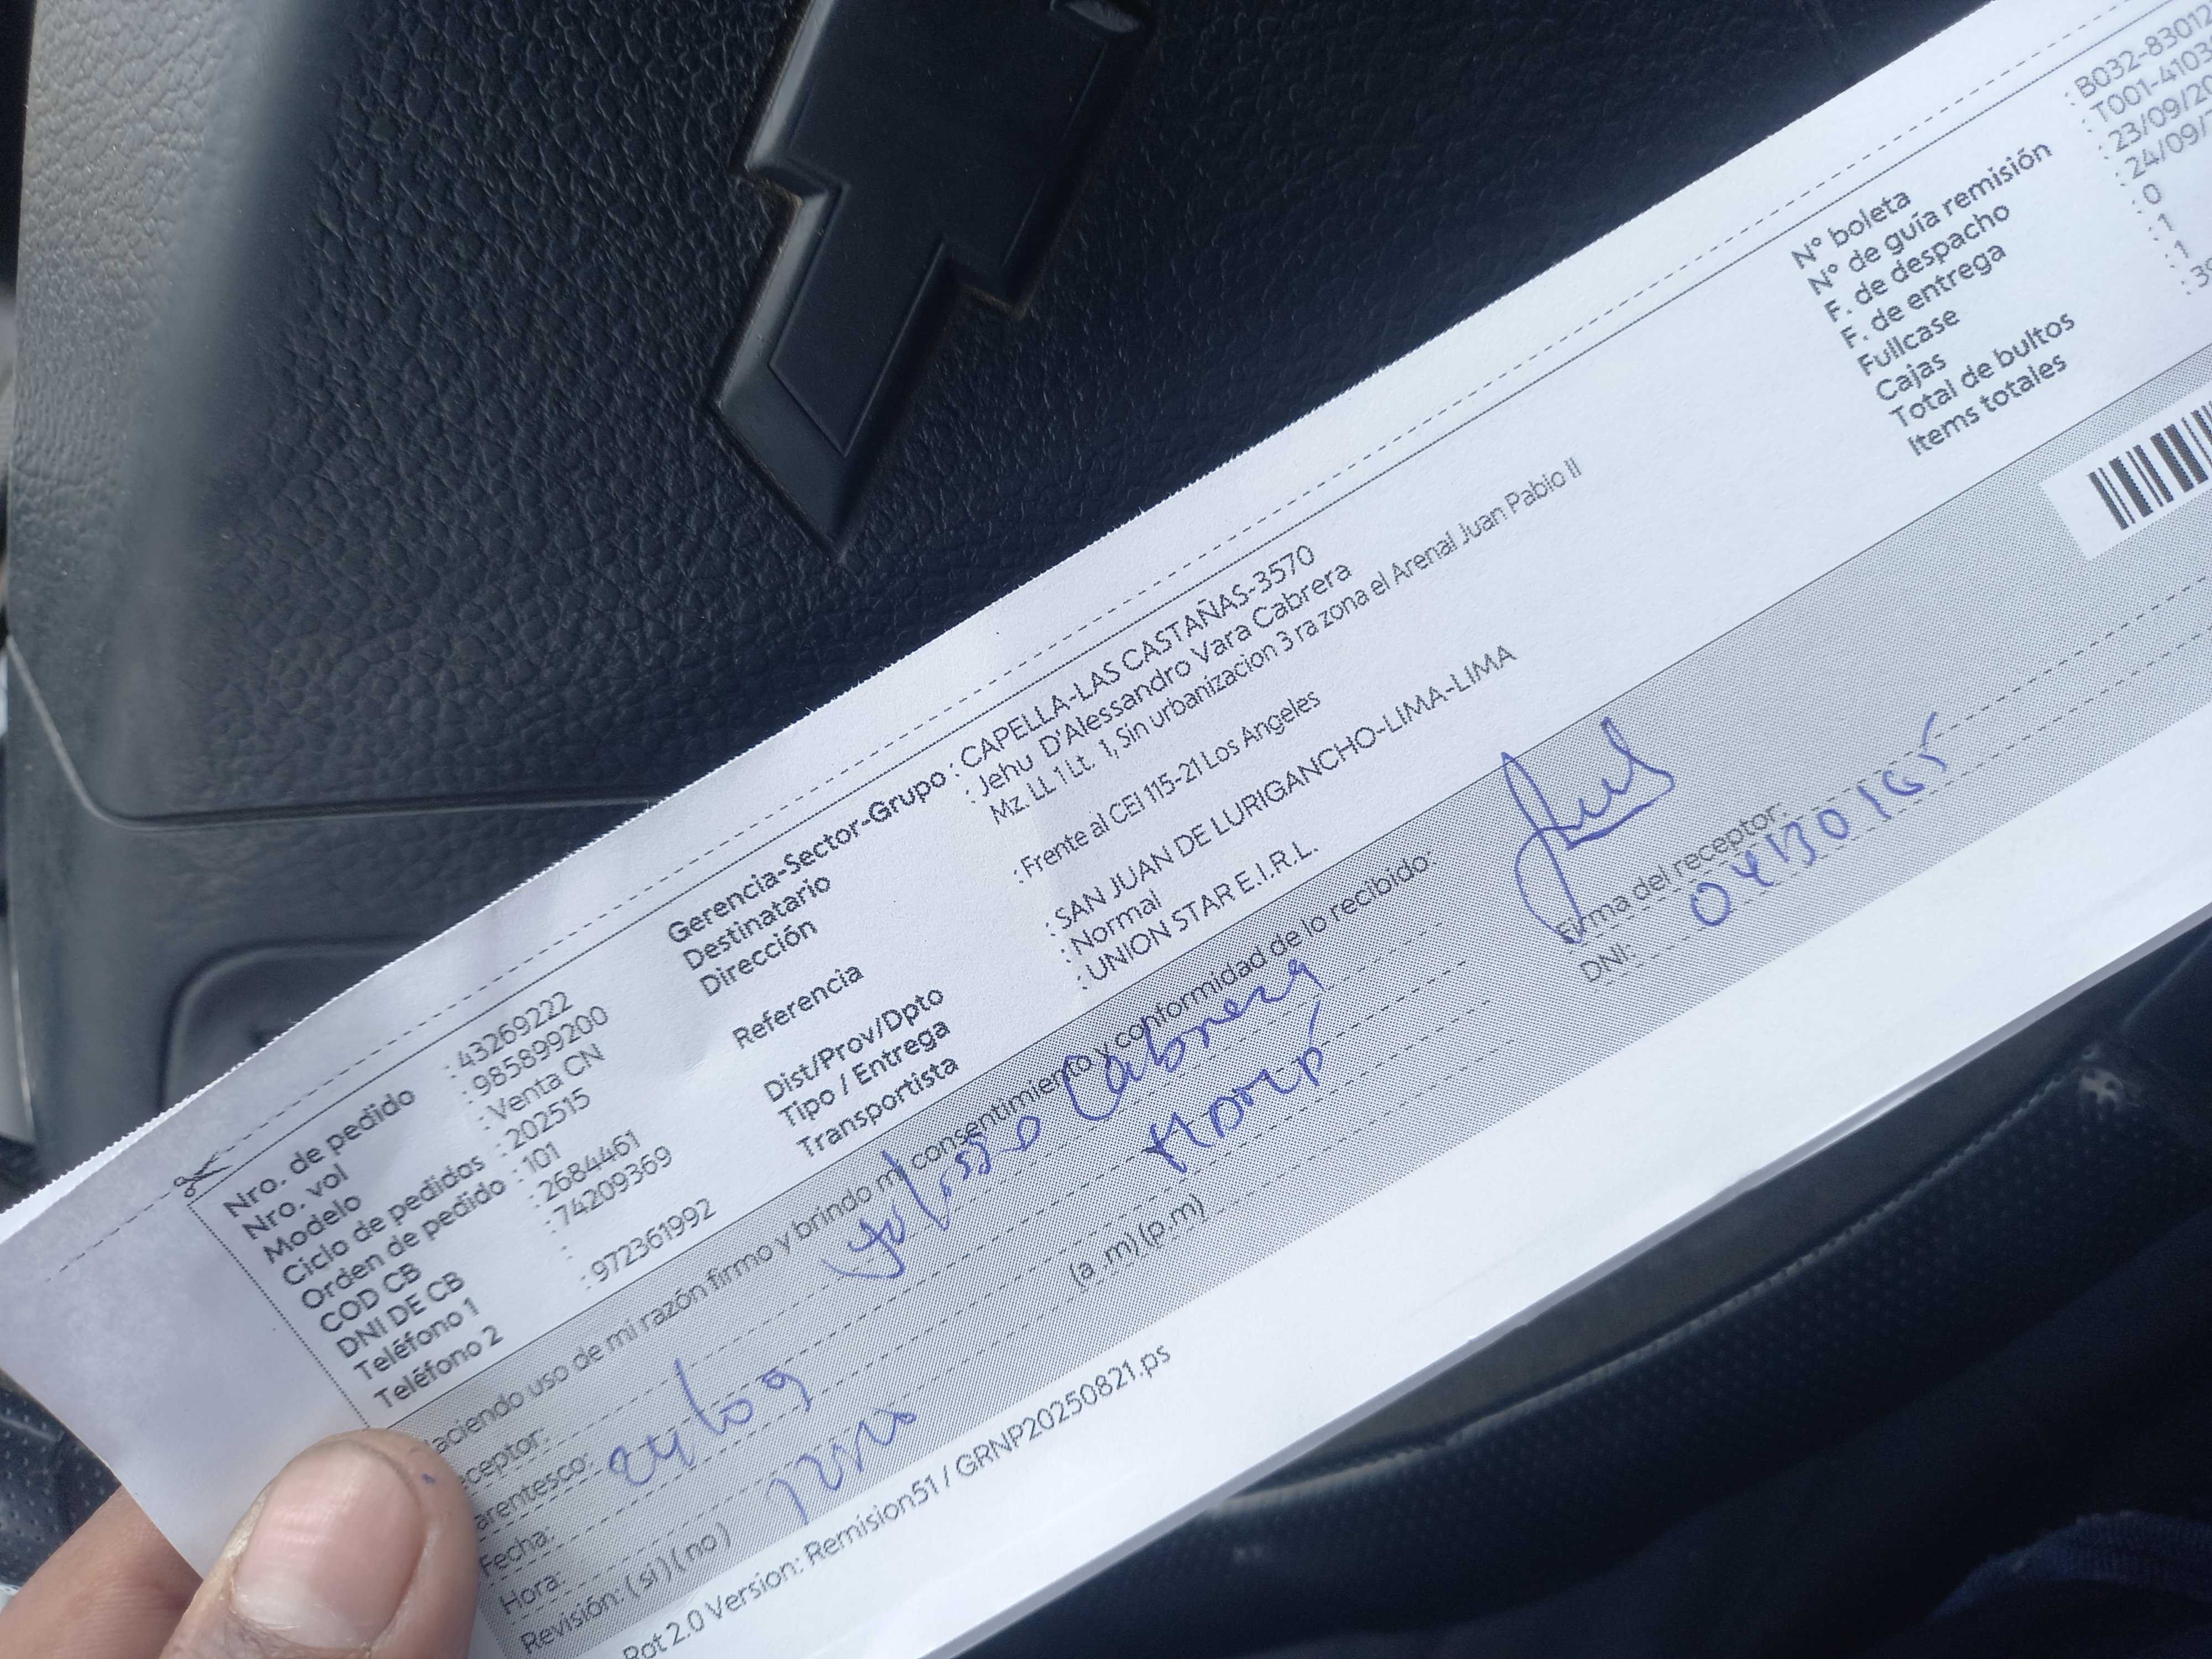 Nro. de pedido : 43269222
Nro. vol : 985899200
Modelo : Venta CN
Ciclo de pedidos : 202515
Orden de pedido : 101
COD CB : 2684461
DNI DE CB : 74209369
Teléfono 1 :
Teléfono 2 : 972361992
Gerencia-Sector-Grupo : CAPELLA-LAS CASTAÑAS-3570
Destinatario : Jehu D'Alessandro Vara Cabrera
Dirección Mz LL 1 Lt. 1, Sin urbanizacion 3 ra zona el Arenal Juan Pablo II
Referencia : Frente al CEI 115-21 Los Angeles
Dist/Prov/Dpto : SAN JUAN DE LURIGANCHO-LIMA-LIMA
Tipo / Entrega : Normal
Transportista : UNION STAR E.I.R.L.
N° boleta : B032-83012
N° de guía remisión : T001-4103
F. de despacho : 23/09/20
F. de entrega : 24/09/
Fullcase : 0
Cajas : 1
Total de bultos : 1
Items totales : 39
aciendo uso de mi razón firmo y brindo mi consentimiento y conformidad de lo recibido:
eceptor: Cabrera
arentesco:
Fecha: 24/09
Hora: (a .m) (p.m)
Revisión: ( si ) ( no )
Firma del receptor:
DNI:
Rot 2.0 Version: Remision51 / GRNP20250821.ps